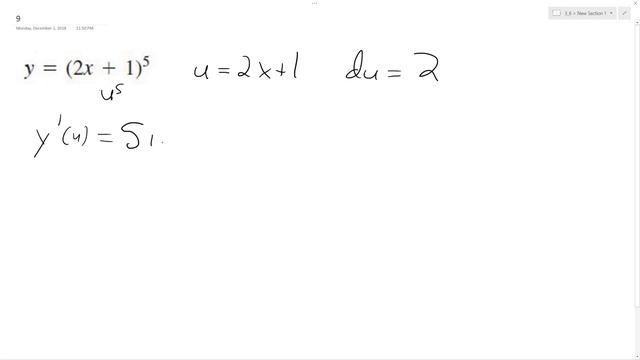 3_6 > New Section 1
9
Monday, December 3, 2018 11:50 PM
y = (2x + 1)⁵ u = 2x+1 du = 2
u⁵
y'(u) = 5